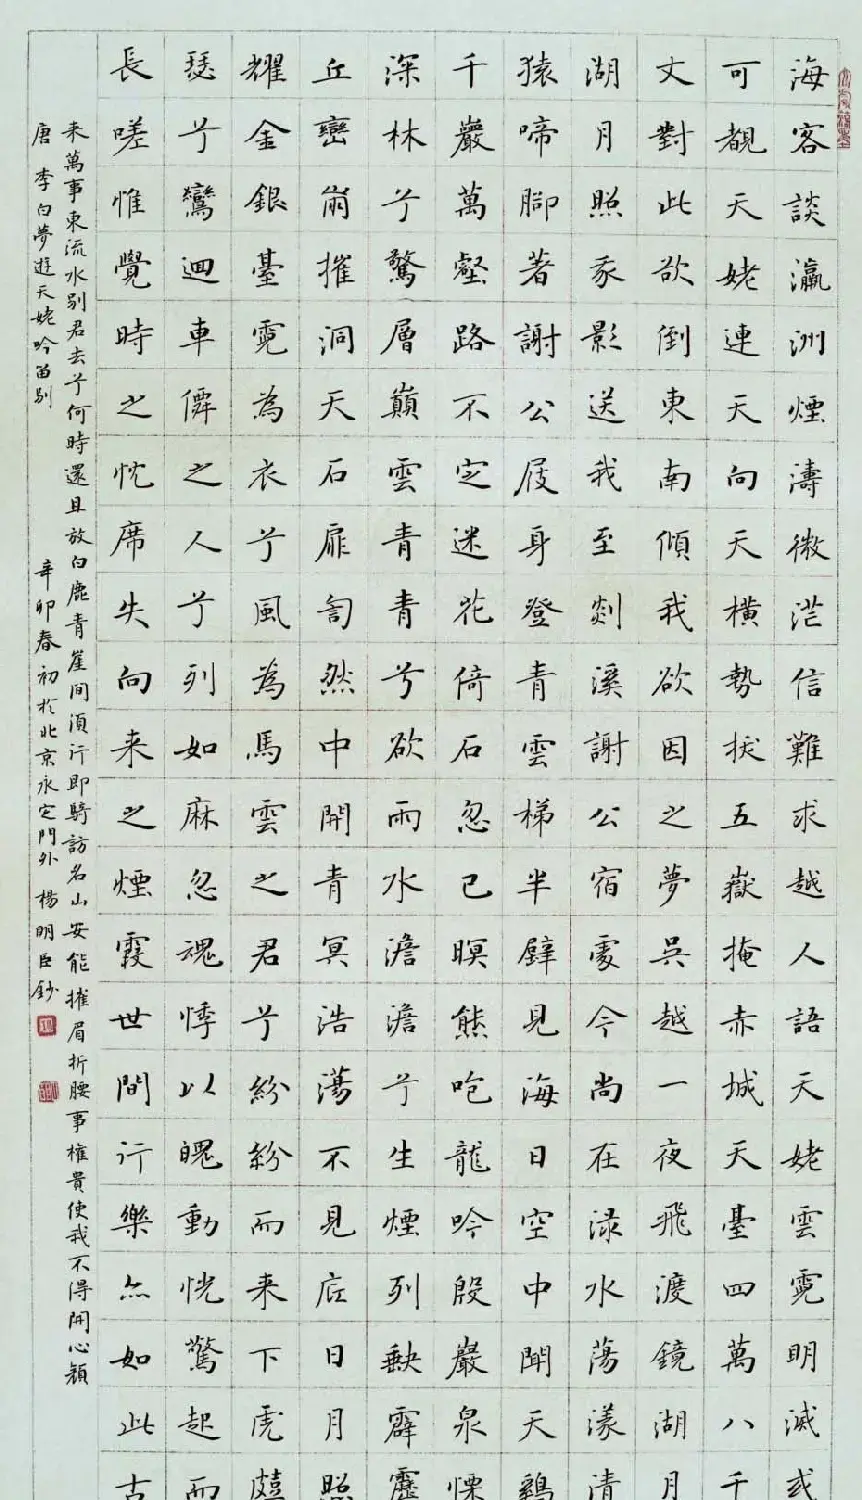 海客談瀛洲煙濤微茫信難求越人語天姥雲霓明滅或
可覩天姥連天向天橫勢拔五嶽掩赤城天臺四萬八千
丈對此欲倒東南傾我欲因之夢吳越一夜飛渡鏡湖月
湖月照我影送我至剡溪謝公宿處今尚在淥水蕩漾清
猿啼腳著謝公屐身登青雲梯半壁見海日空中聞天鷄
千巖萬壑路不定迷花倚石忽已暝熊咆龍吟殷巖泉慄
深林兮驚層巔雲青青兮欲雨水澹澹兮生煙列缺霹靂
丘巒崩摧洞天石扉訇然中開青冥浩蕩不見底日月照
耀金銀臺霓為衣兮風為馬雲之君兮紛紛而来下虎鼓
瑟兮鸞迴車僊之人兮列如麻忽魂悸以魄動恍驚起而
長嗟惟覺時之枕席失向来之煙霞世間行樂亦如此古
来萬事東流水别君去兮何時還且放白鹿青崖間須行即騎訪名山安能摧眉折腰事權貴使我不得開心顏
唐李白夢遊天姥吟留别 辛卯春初於北京永定門外楊明臣鈔